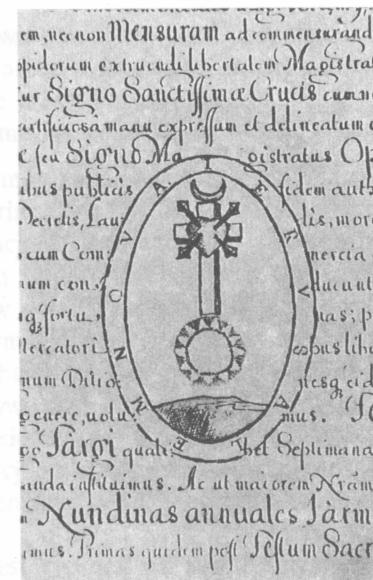 em, necnon Mensuram ad commensurand
pidorum extruendi libertatem Magistrat
ur Signo Sanctissimæ Crucis cum
artificiosa manu expressum et delineatum
seu Signo Ma gistratus Op
ibus publicis fidem auth
Decretis, Lau dis, mor
cum Com mercia
num con ducunt
fortu nas; p
Mercatori bus libe
num Ditio nesq eid
genere, uolu mus.
Targi quali bet Septimana
anda instituimus. Ac ut maiorem Nram
Nundinas annuales Jarm
imus. Primas quidem post Festum Sacr
TERVAEMNOVA